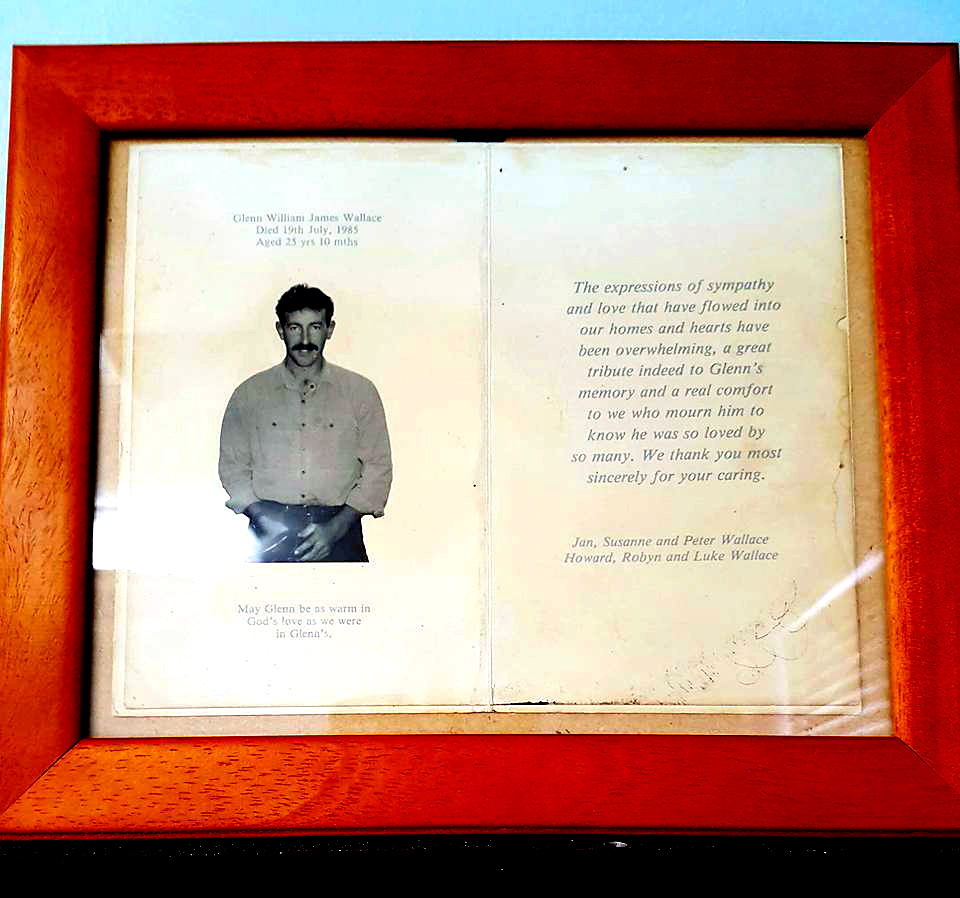 Glenn William James Wallace
Died 19th July, 1985
Aged 25 yrs 10 mths
May Glenn be as warm in
God's love as we were
in Glenn's.
The expressions of sympathy
and love that have flowed into
our homes and hearts have
been overwhelming, a great
tribute indeed to Glenn's
memory and a real comfort
to we who mourn him to
know he was so loved by
so many. We thank you most
sincerely for your caring.
Jan, Susanne and Peter Wallace
Howard, Robyn and Luke Wallace